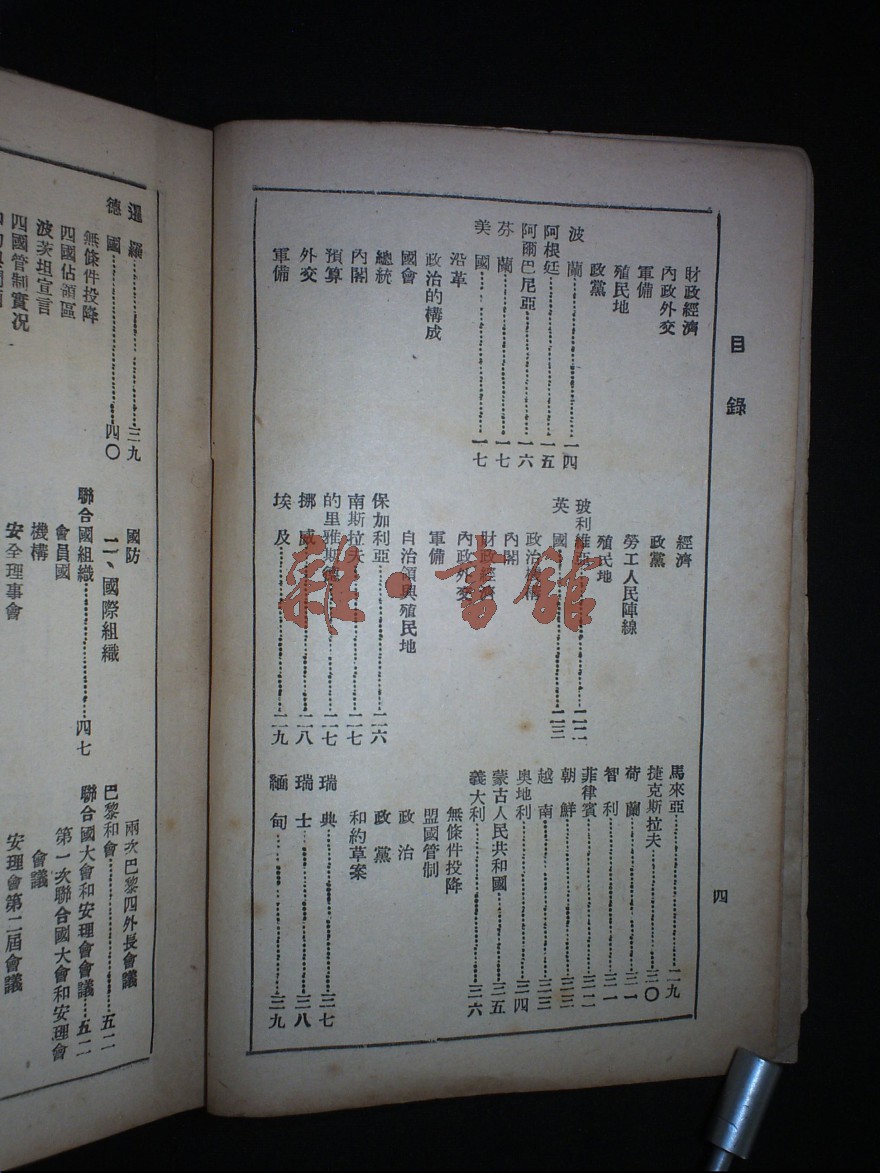 目錄
財政經濟
內政外交
軍備
殖民地
政黨
波蘭……一四
阿根廷……一五
阿爾巴尼亞……一六
芬蘭……一七
美國……一七
沿革
政治的構成
國會
總統
內閣
預算
外交
軍備
經濟
政黨
勞工人民陣線
殖民地
玻利維亞……二二
英國……二三
政治機構
內閣
財政經濟
內政外交
軍備
自治領與殖民地
保加利亞……二六
南斯拉夫……二七
的里雅斯德……二七
挪威……二八
埃及……二九
馬來亞……二九
捷克斯拉夫……三〇
荷蘭……三一
智利……三一
菲律賓……三二
朝鮮……三三
越南……三三
奧地利……三四
蒙古人民共和國……三五
義大利……三六
無條件投降
盟國管制
政治
政黨
和約草案
瑞典……三七
瑞士……三八
緬甸……三九
四
暹羅……三九
德國……四〇
無條件投降
四國佔領區
波茨坦宣言
四國管制實況
國防
二、國際組織
聯合國組織……四七
會員國
機構
安全理事會
兩次巴黎四外長會議
巴黎和會……五二
聯合國大會和安理會會議……五二
第一次聯合國大會和安理會
會議
安理會第二屆會議
雜·書館